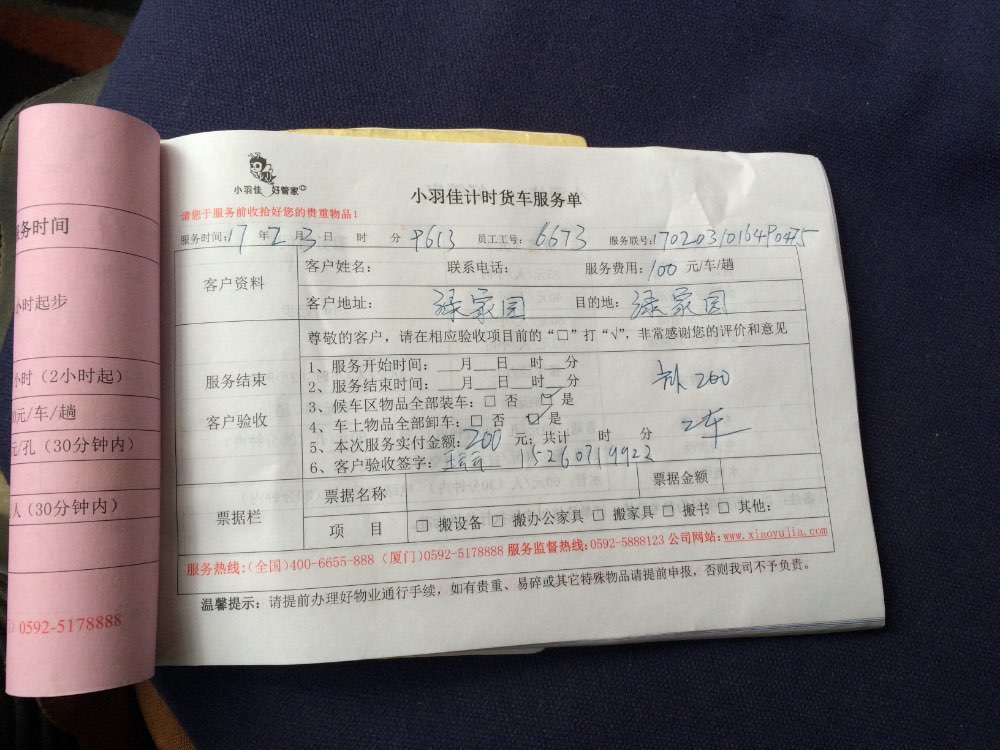 小羽佳 好管家
小羽佳计时货车服务单
请您于服务前收拾好您的贵重物品！
服务时间：17 年 2 月 3 日 时 分 9613 员工工号：6673 服务联号：1702031016490475
客户资料
客户姓名： 联系电话： 服务费用：100 元/车/趟
客户地址： 绿家园 目的地： 绿家园
尊敬的客户，请在相应验收项目前的“□”打“√”，非常感谢您的评价和意见
服务结束
客户验收
1、服务开始时间：__月__日__时__分
2、服务结束时间：__月__日__时__分
3、候车区物品全部装车：□ 否 □ 是
4、车上物品全部卸车：□ 否 □ 是
5、本次服务实付金额：200 元；共计 时 分
6、客户验收签字： 15260719922
200
2车
票据栏
票据名称 票据金额
项 目 □ 搬设备 □ 搬办公家具 □ 搬家具 □ 搬书 □ 其他：
服务热线：(全国)400-6655-888 (厦门)0592-5178888 服务监督热线：0592-5888123 公司网站：www.xiaoyujia.com
温馨提示：请提前办理好物业通行手续，如有贵重、易碎或其它特殊物品请提前申报，否则我司不予负责。
务时间
小时起步
小时（2小时起）
元/车/趟
元/孔（30分钟内）
人（30分钟内）
0592-5178888